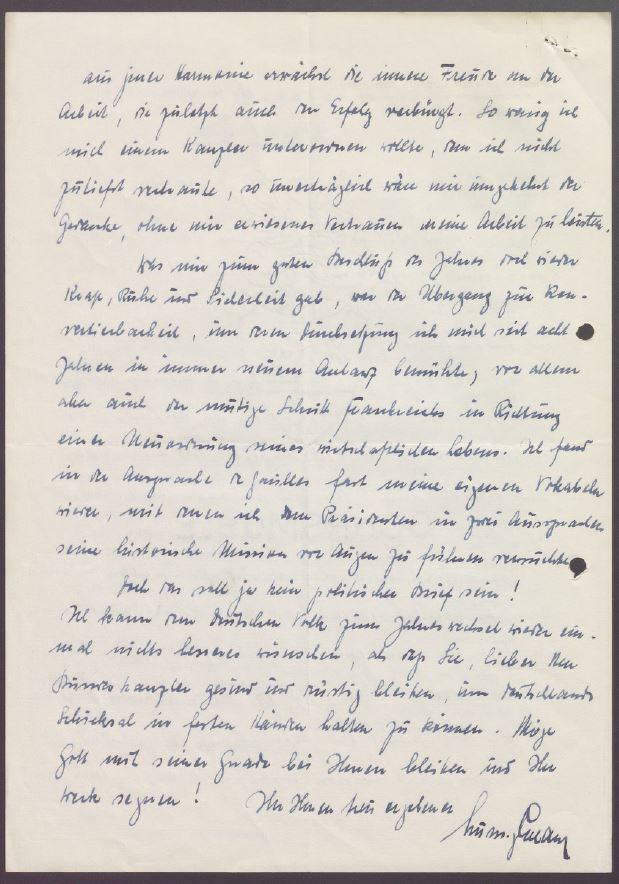 aus jener Harmonie erwächst die innere Freude an der
Arbeit, die zuletzt auch den Erfolg verbürgt. So wenig ich
mich einem Kanzler unterordnen wollte, dem ich nicht
zutiefst vertraute, so unerträglich wäre mir umgekehrt der
Gedanke, ohne mir erwiesenes Vertrauen meine Arbeit zu leisten.
Was mir zum guten Abschluß des Jahres doch wieder
Kraft, Ruhe und Sicherheit gab, war der Übergang zur Kon-
vertierbarkeit, um deren Durchsetzung ich mich seit acht
Jahren in immer neuem Anlauf bemühte; vor allem
aber auch der mutige Schritt Frankreichs in Richtung
einer Neuordnung seines wirtschaftlichen Lebens. Ich fand
in der Ansprache de Gaulles fast meine eigenen Vokabeln
wieder, mit denen ich dem Präsidenten in zwei Aussprachen
seine historische Mission vor Augen zu führen versuchte.
Doch das soll ja kein politischer Brief sein!
Ich kann dem deutschen Volk zum Jahreswechsel wieder ein-
mal nichts besseres wünschen, als daß Sie, lieber Herr
Bundeskanzler gesund und rüstig bleiben, um Deutschlands
Schicksal in festen Händen halten zu können. Möge
Gott mit seiner Gnade bei Ihnen bleiben und Ihr
Werk segnen! Ihr Ihnen treu ergebener